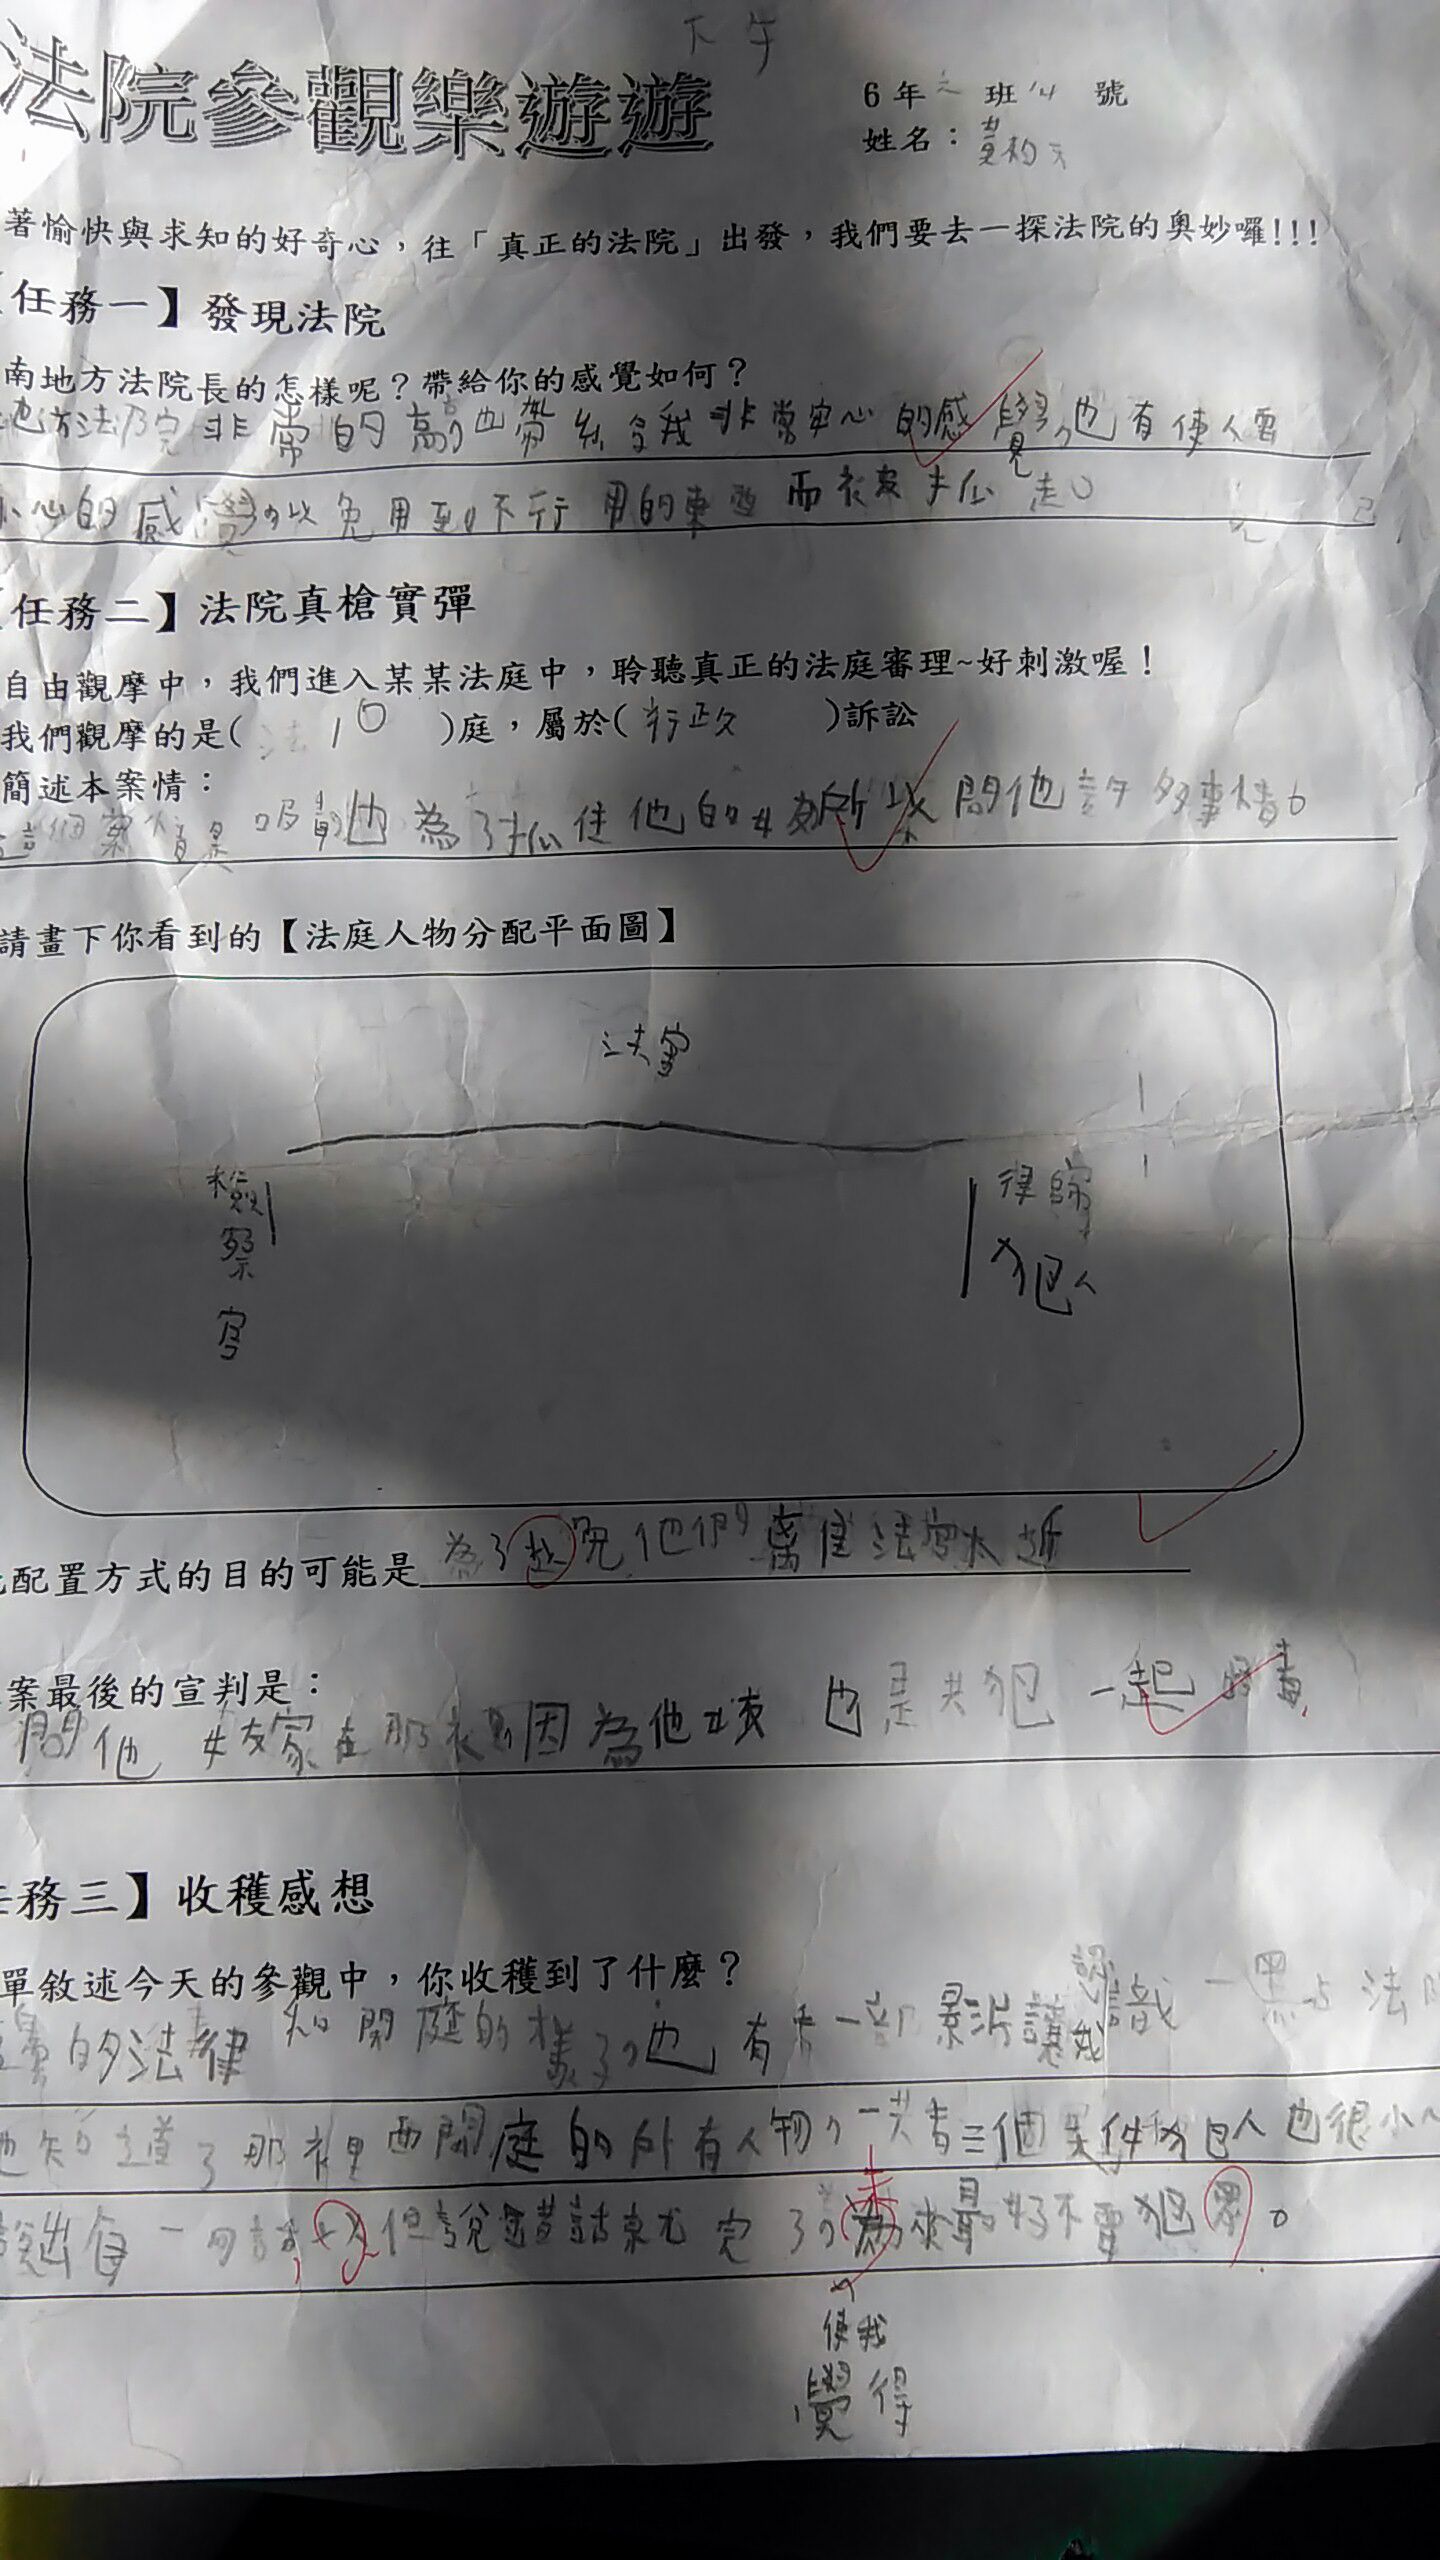 下午
法院參觀樂遊遊
6年 班14 號
姓名：黃
著愉快與求知的好奇心，往「真正的法院」出發，我們要去一探法院的奧妙囉!!!
【任務一】發現法院
南地方法院長的怎樣呢？帶給你的感覺如何？
地方法院非常的高，也帶給我非常安心的感覺，也有使人要
小心的感覺，以免用到不行用的東西而被抓走。
【任務二】法院真槍實彈
自由觀摩中，我們進入某某法庭中，聆聽真正的法庭審理~好刺激喔！
我們觀摩的是( 法 10 )庭，屬於( 行政 )訴訟
簡述本案情：
這個案情是吸毒也為了抓住他的女友所以來問他許多事情。
請畫下你看到的【法庭人物分配平面圖】
法官
檢察官
律師
犯人
配置方式的目的可能是 為了 免他們離法官太近
案最後的宣判是：
問他女友家在那裡，因為他女友也是共犯一起吸毒
任務三】收穫感想
單敘述今天的參觀中，你收穫到了什麼？
的法律 知開庭的樣子，也有看一部影片讓我認識一點法
也知道了那裡 開庭的所有人物，一共看三個案件，犯人也很小心
說出每一句話， 但說錯話就完了， 最好不要犯罪。
使我
覺得